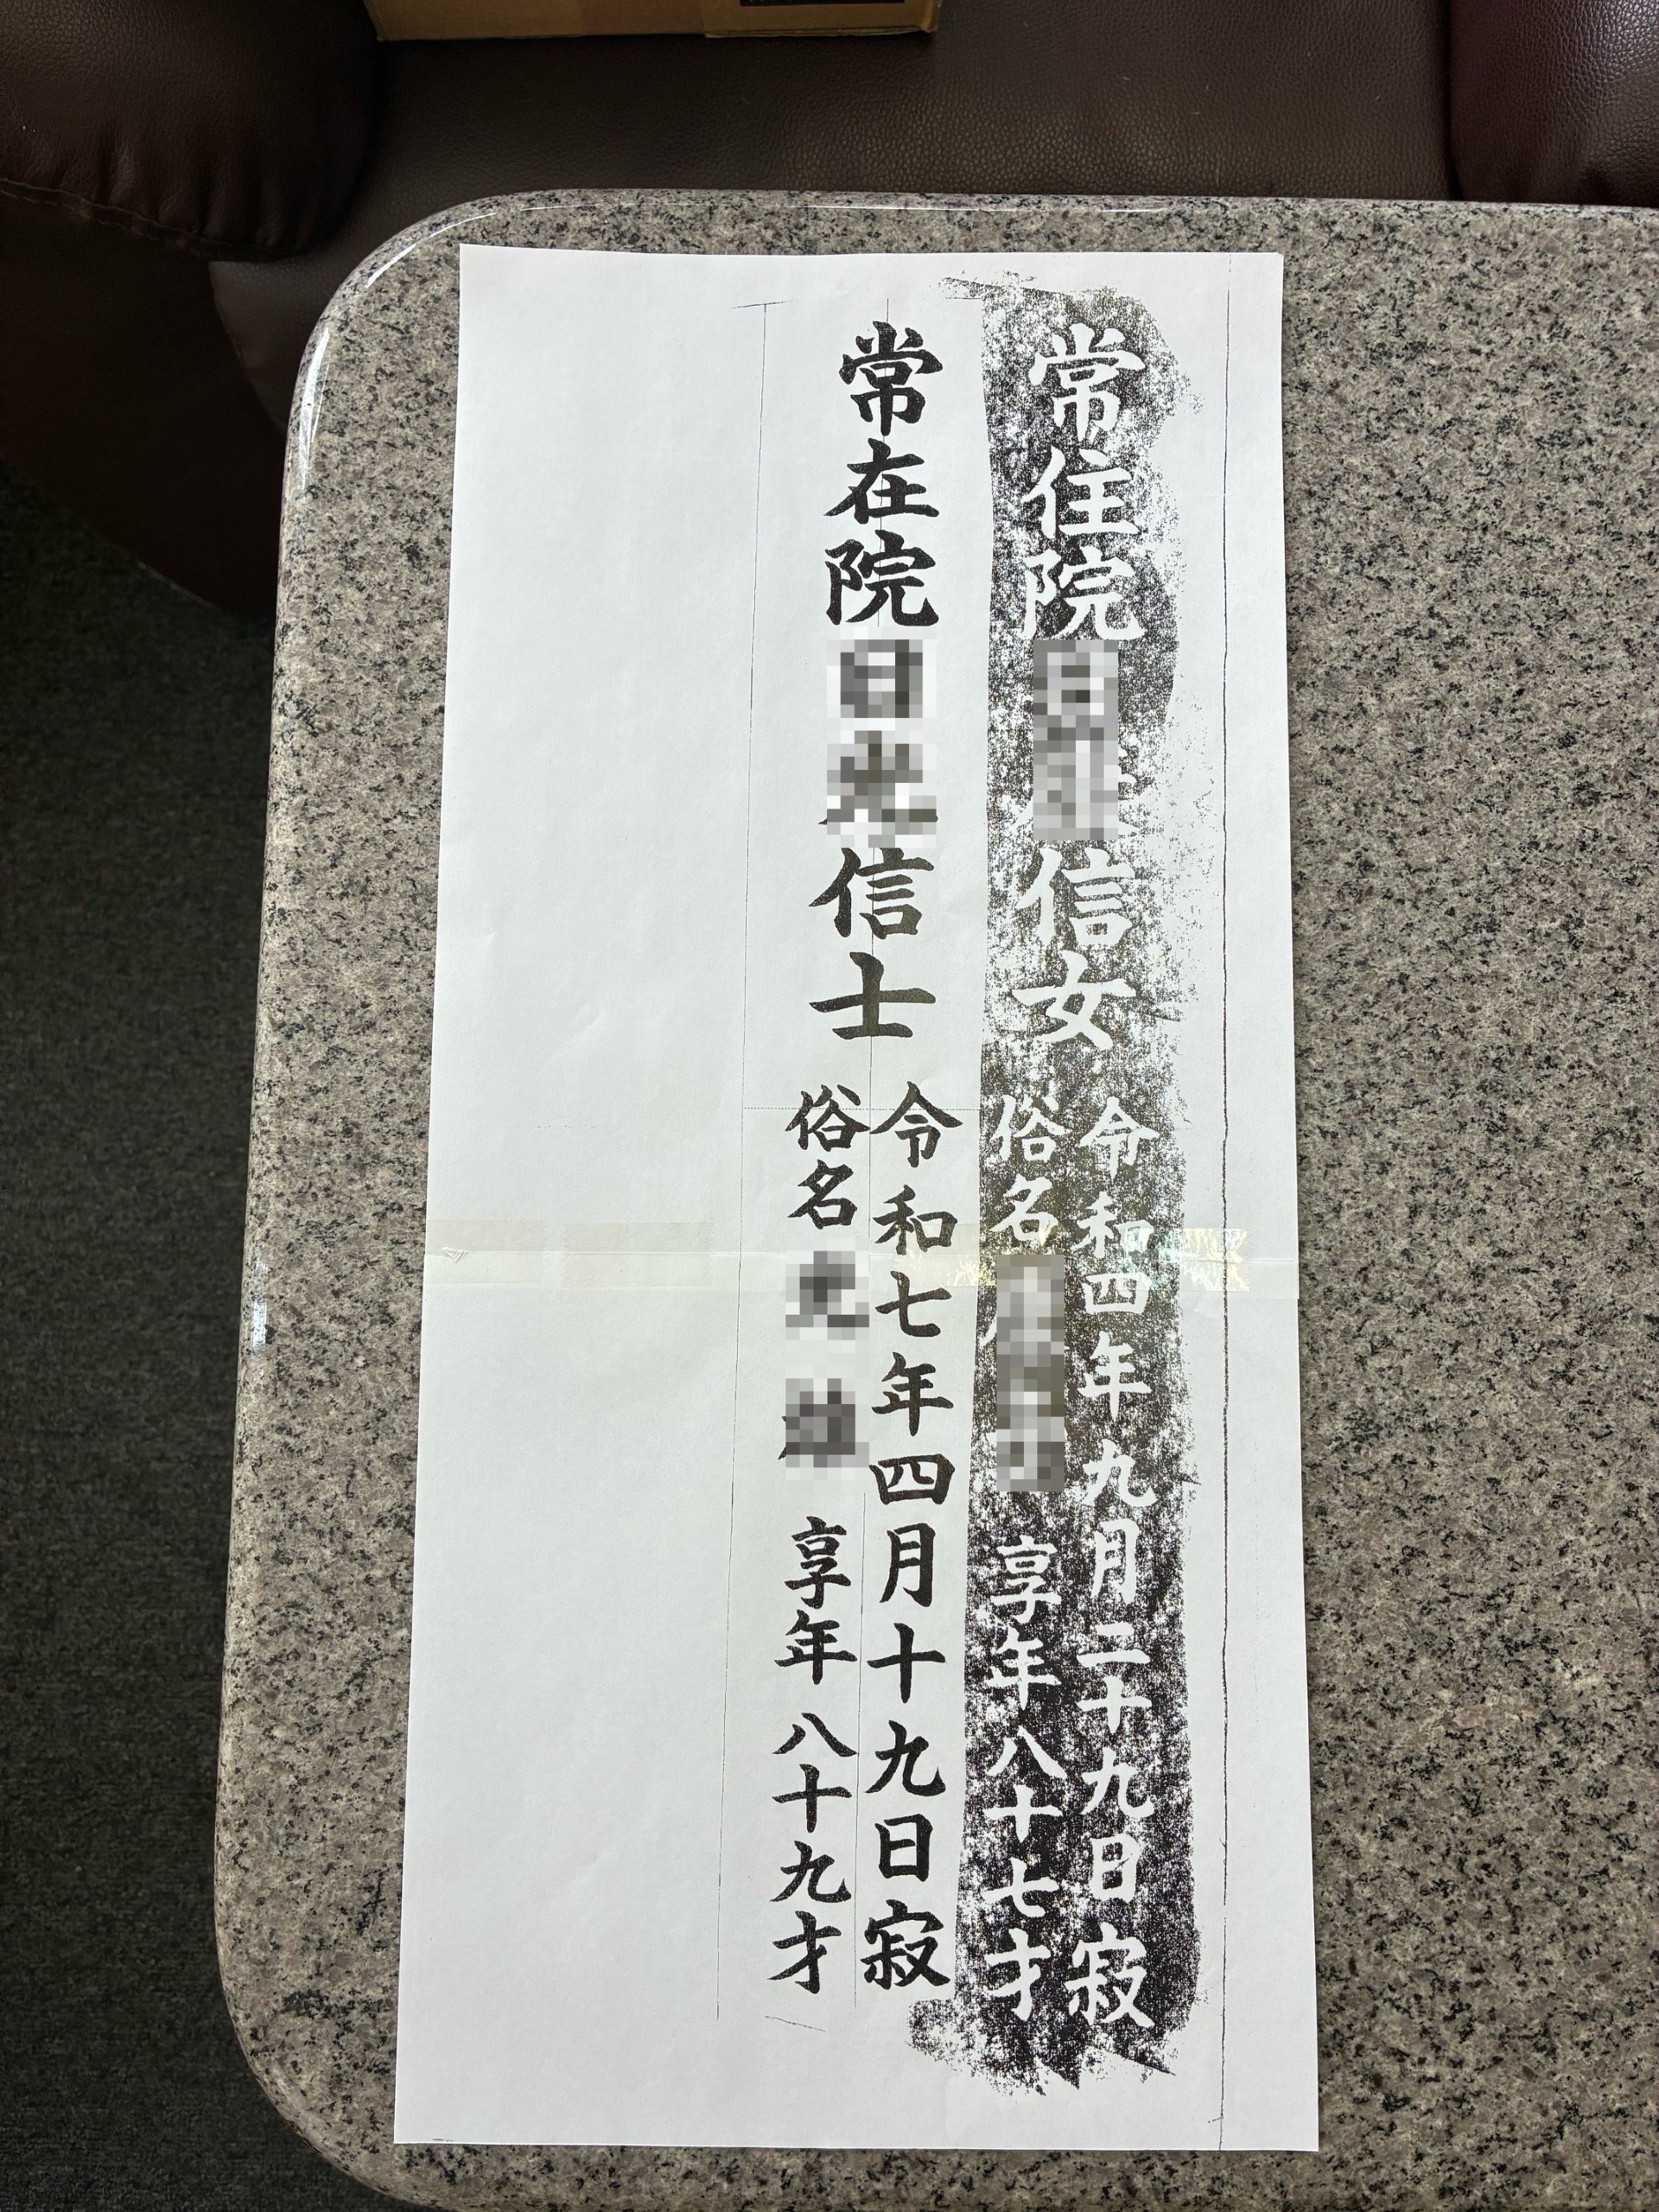 常住院
信女
令和四年九月二十九日寂
俗名
享年八十七才
常在院
信士
令和七年四月十九日寂
俗名
享年八十九才